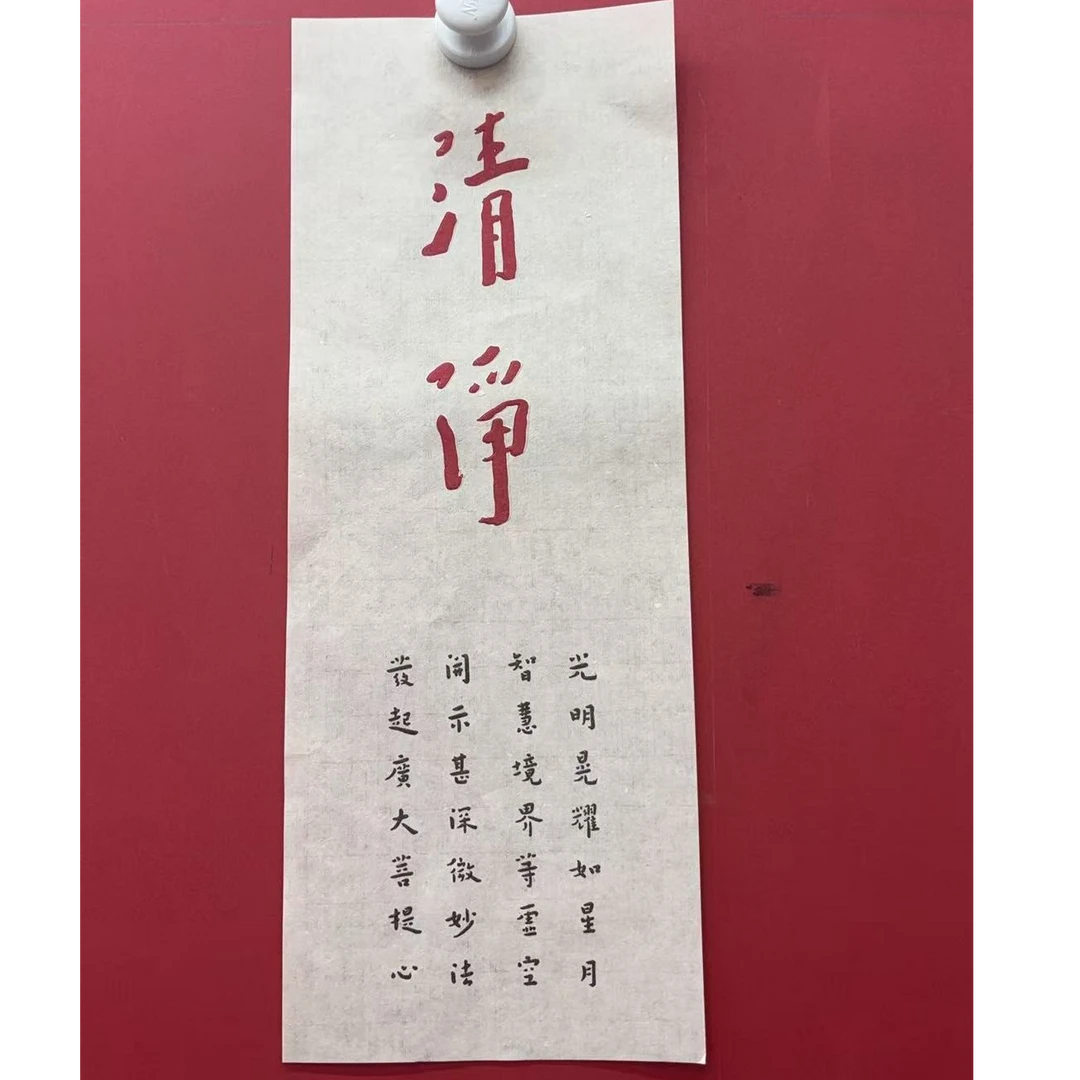 清淨
光明晃耀如星月
智慧境界等虛空
開示甚深微妙法
發起廣大菩提心